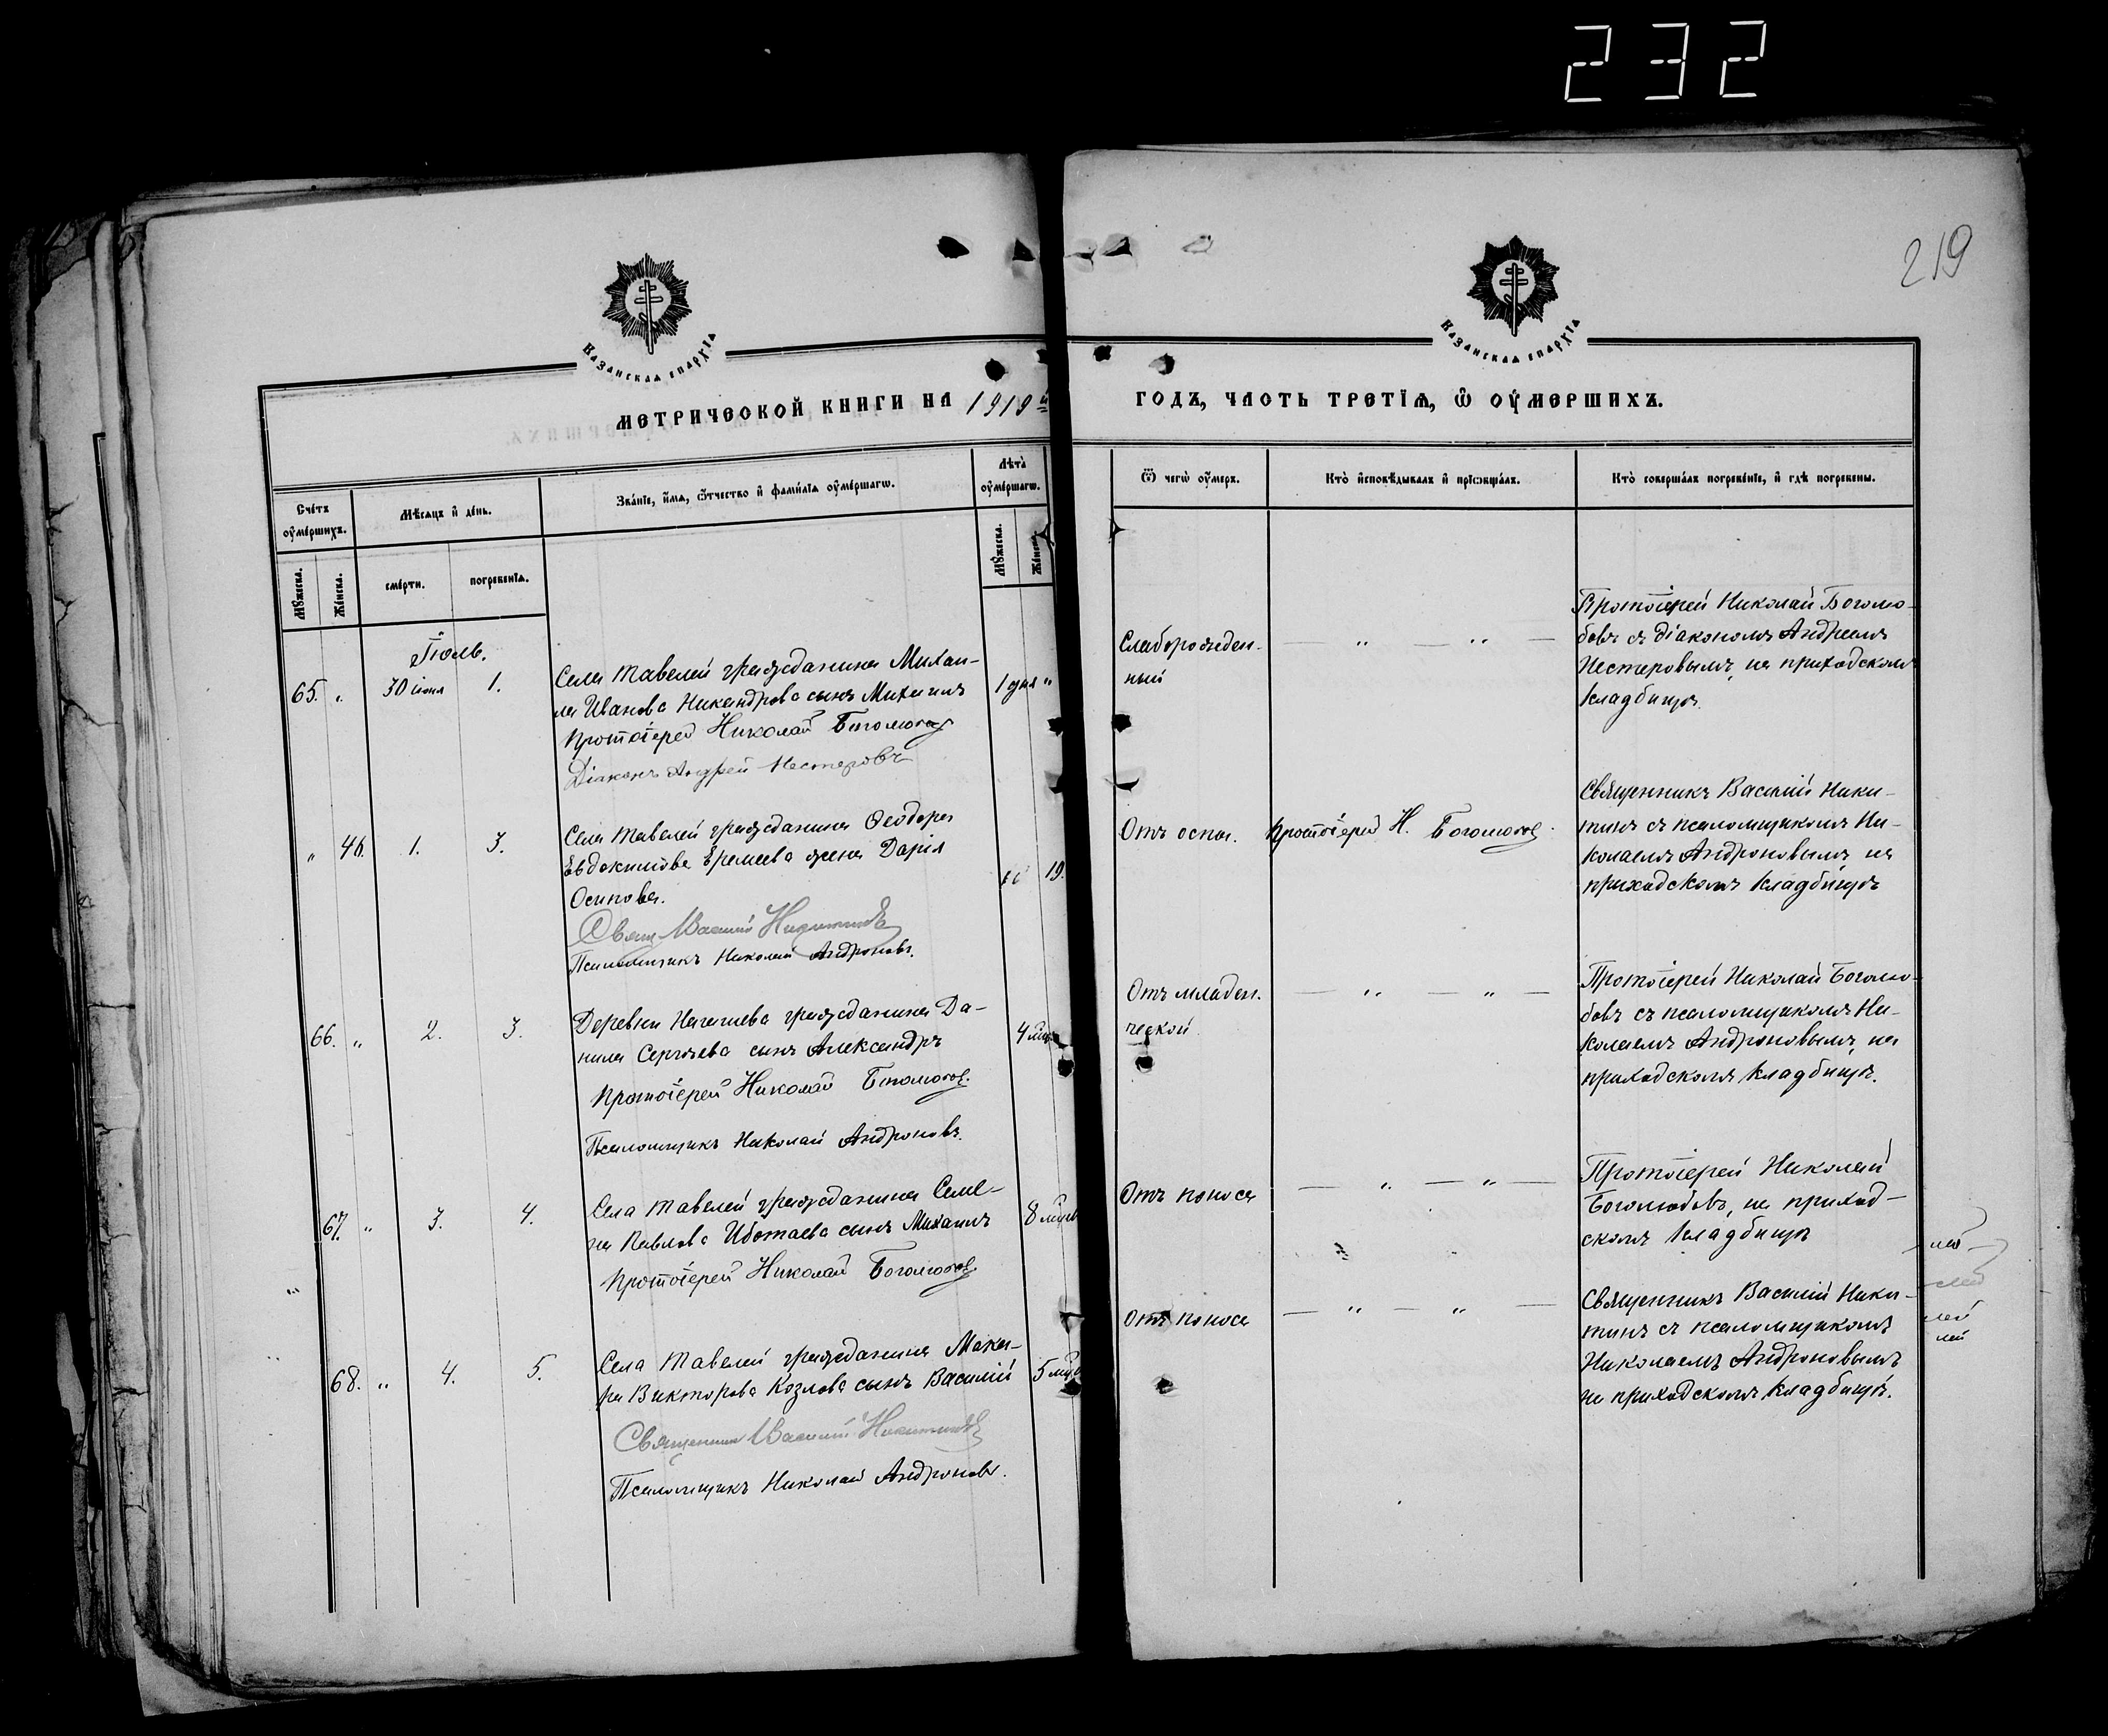 232
219
Казанская епархїа
Казанская епархїа
МЕТРИЧЕСКОЙ КНИГИ НА 1919 й
ГОДЪ, ЧАСТЬ ТРЕТЇѦ, Ѿ ОУМЕРШИХЪ.
Счéтъ оу҆мéршихъ.
Мѣ́сѧцъ и҆ дéнь.
Звáнїе, и҆́мѧ, ѻ҆́тчество и҆ фами́лїѧ оу҆мéршагѡ.
Лѣтà оу҆мéршагѡ.
Ѿ чегѡ̀ оу҆́меръ.
Ктò и҆сповѣ́дывалъ и҆ прїѡбщáлъ.
Ктò совершáлъ погребéнїе, и҆ гдѣ̀ погребены.
Мꙋ́жеска.
Жéнска.
смéрти.
погребéнїѧ.
Мꙋ́жеска.
Жéнска.
Іюль.
65. " 30 іюня 1.
Села Тавелей гражданина Михаи-
ла Иванова Никандрова сынъ Михаилъ
Протоіерей Николай Боголюбов
Діаконъ Андрей Нестеровъ
1 дня "
Слаборожден-
ный
— " — " —
Протоіерей Николай Боголю-
бовъ съ діакономъ Андреемъ
Нестеровымъ, на приходскомъ
кладбищѣ.
" 46. 1. 3.
Села Тавелей гражданина Ѳеодора
Евдокимова Еремеева жена Дарія
Осипова.
Свящ. Василій Никитинъ
Псаломщикъ Николай Андроновъ.
" 19.
Отъ оспы.
Протоіерей Н. Боголюбов.
Священникъ Василій Ники-
тинъ съ псаломщикомъ Ни-
колаемъ Андроновымъ, на
приходскомъ кладбищѣ
66. " 2. 3.
Деревни
гражданина Да-
нила Сергѣева сынъ Александръ
Протоіерей Николай Боголюбов.
Псаломщикъ Николай Андроновъ.
4
Отъ младен.
ческой.
— " — " —
Протоіерей Николай Боголю-
бовъ съ псаломщикомъ Ни-
колаемъ Андроновымъ, на
приходскомъ кладбищѣ.
67. " 3. 4.
Села Тавелей гражданина Семе-
на Павлова Ибатаева сынъ Михаилъ
Протоіерей Николай Боголюбов
8
Отъ поноса
— " — " —
Протоіерей Николай
Боголюбовъ, на приход-
скомъ кладбищѣ
68. " 4. 5.
Села Тавелей гражданина Мака-
ра Викторова Козлова сынъ Василій
Священник Василій Никитинъ
Псаломщикъ Николай Андроновъ.
5
Отъ поноса
— " — " —
Священникъ Василій Ники-
тинъ съ псаломщикомъ
Николаемъ Андроновымъ
на приходскомъ кладбищѣ.